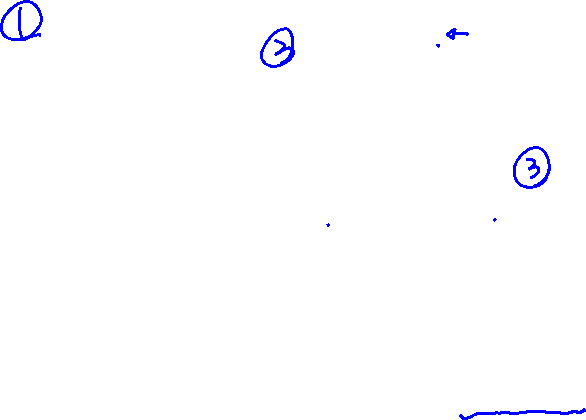 ①
②
←
③